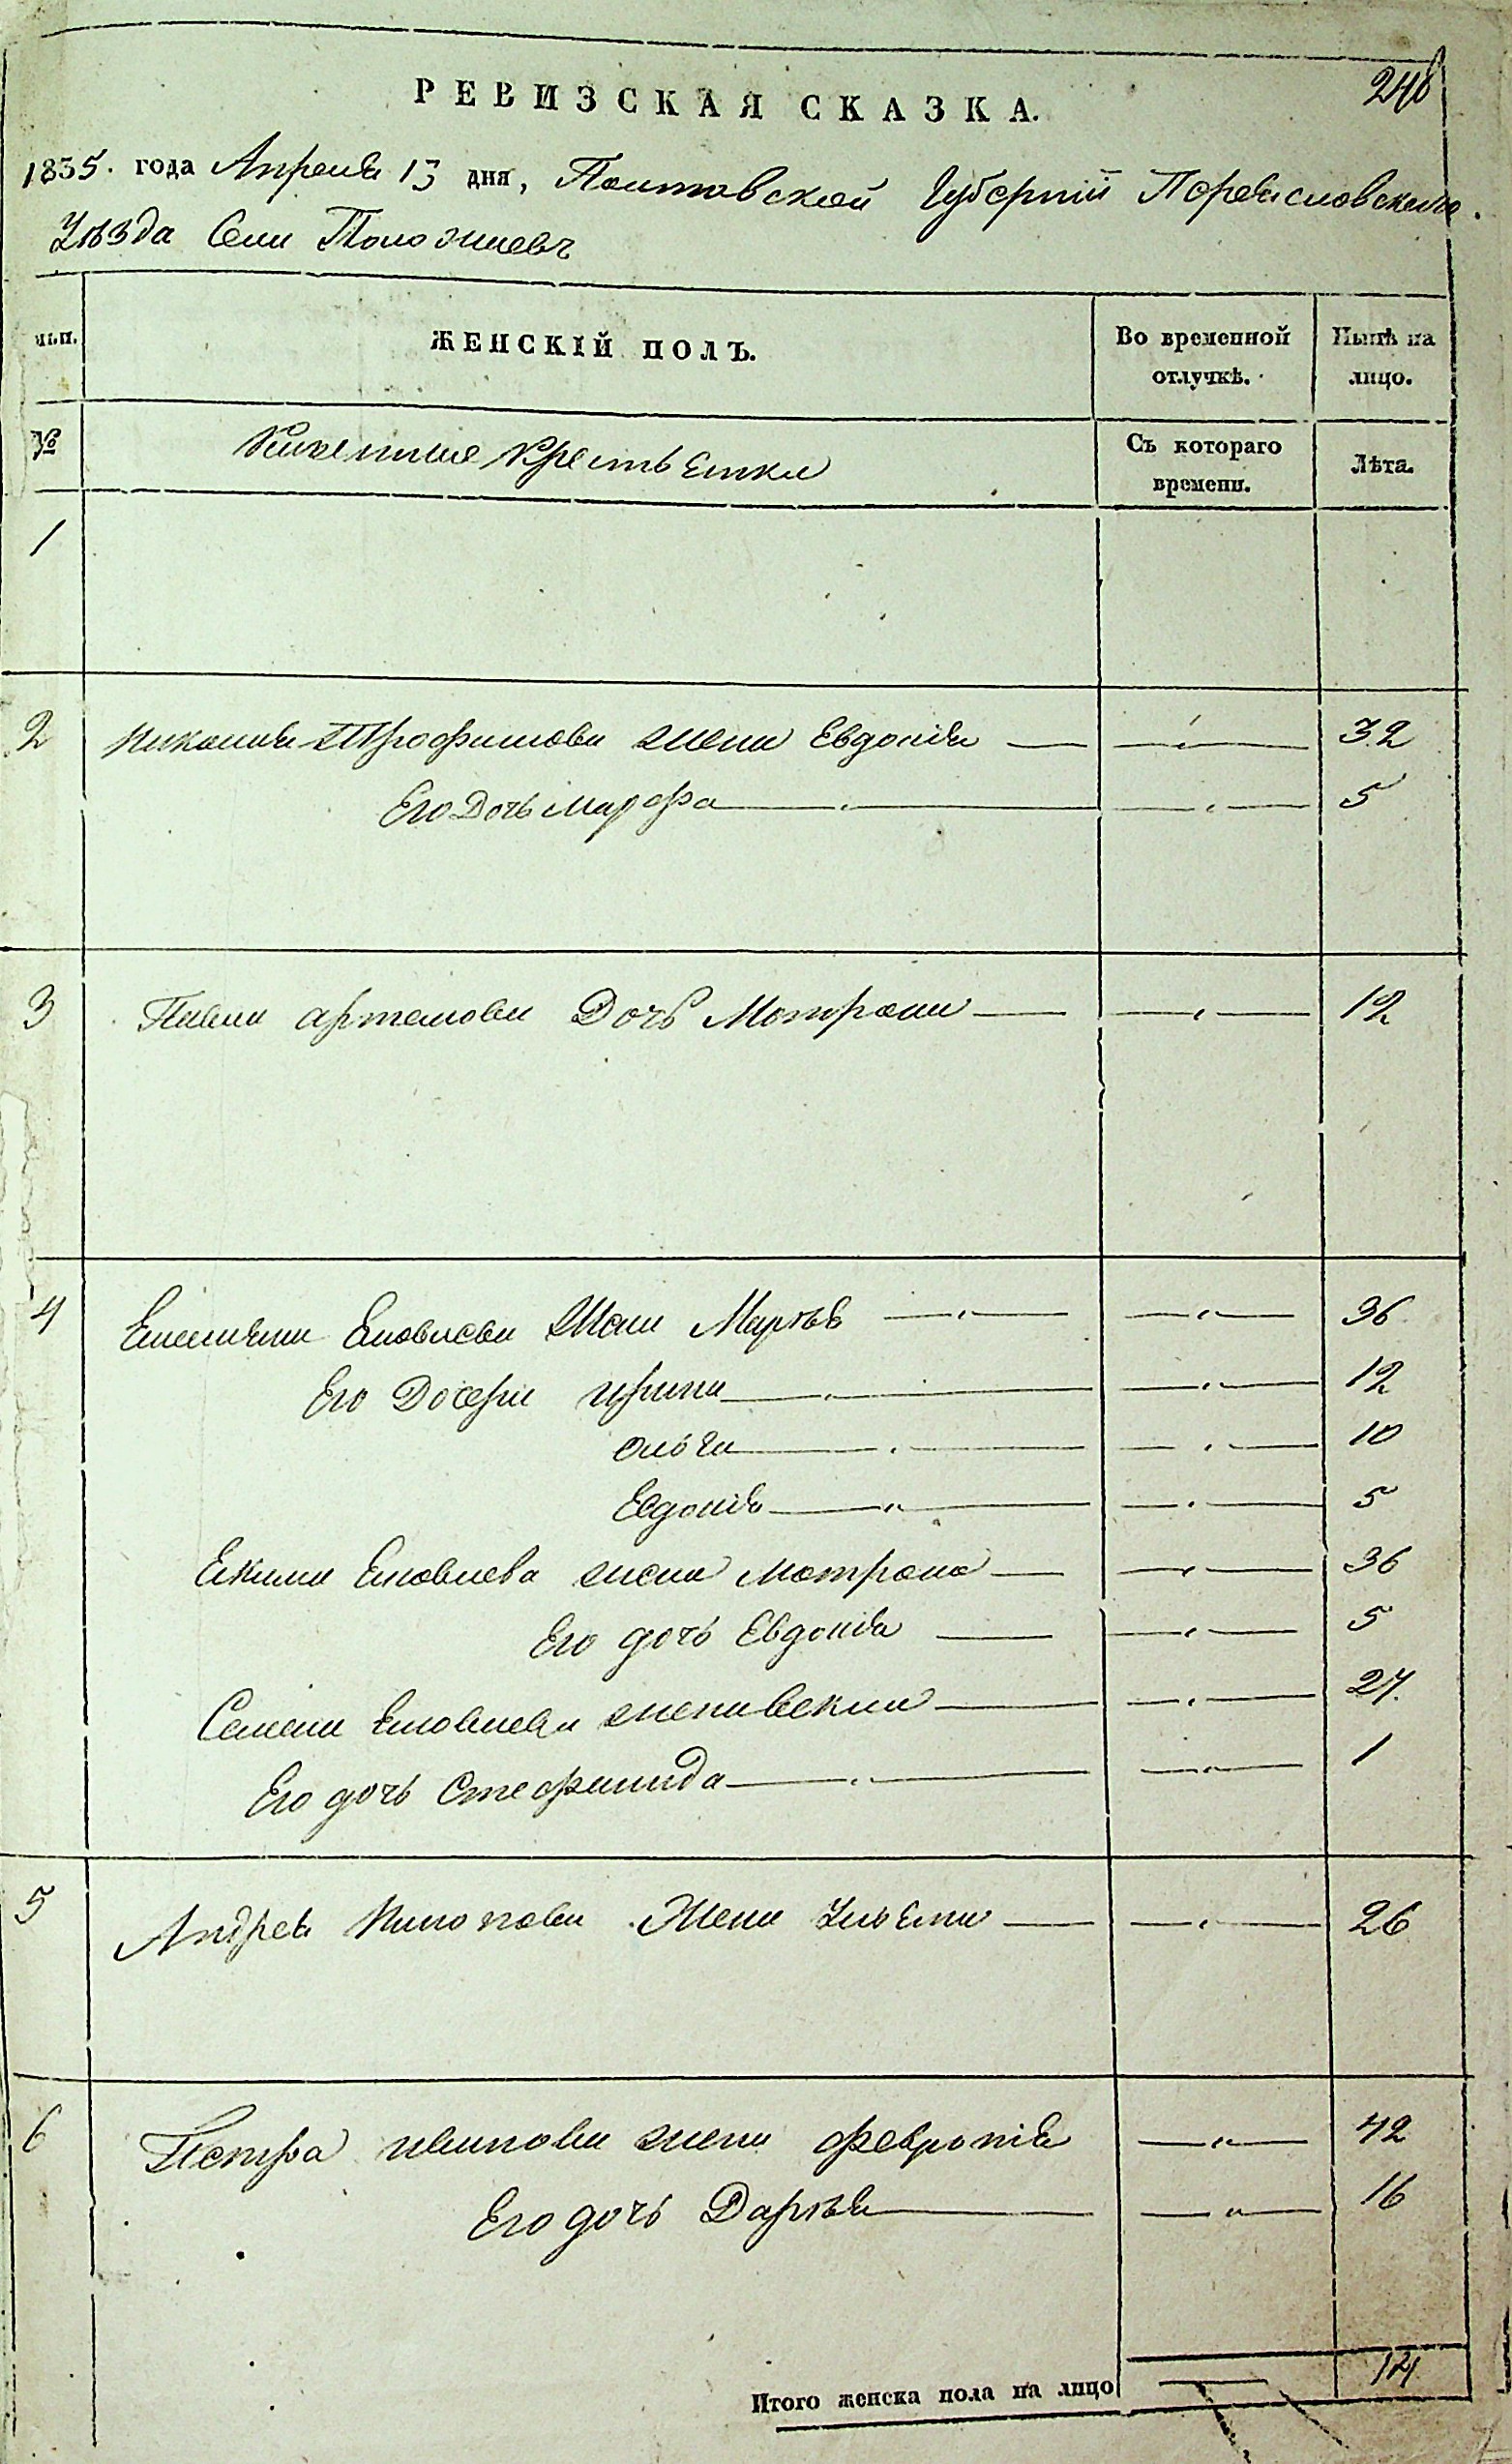 248
РЕВИЗСКАЯ СКАЗКА.
1835. года Апреля 13 дня, Полтавской Губернїи Переяславского
Уѣзда Села Положаевъ
ЖЕНСКІЙ ПОЛЪ.
Во временной отлучкѣ.
Нынѣ на лицо.
№
крестьянки
Съ котораго времени.
Лѣта.
1
2 Николая Трофимова жена Евдокія 32
Его Дочь Марфа 5
3 Павла артемова Дочь Мотрона 12
4 Емельяна Яковлева Жена Марья 36
Его Дочери ирина 12
ольга 10
Евдокія 5
Екима Яковлева жена мотрона 36
Его дочь Евдокія 5
Семена Яковлева жена векла 27.
Его дочь Стефанида 1
5 Андрея Жена Ульяна 26
6 Петра иванова жена февронія 42
Его дочь Дарья 16
Итого женска пола на лицо 14